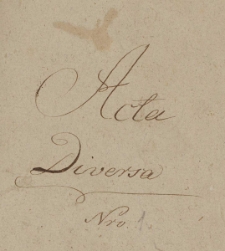 Acta
Diversa
Nro. 1.